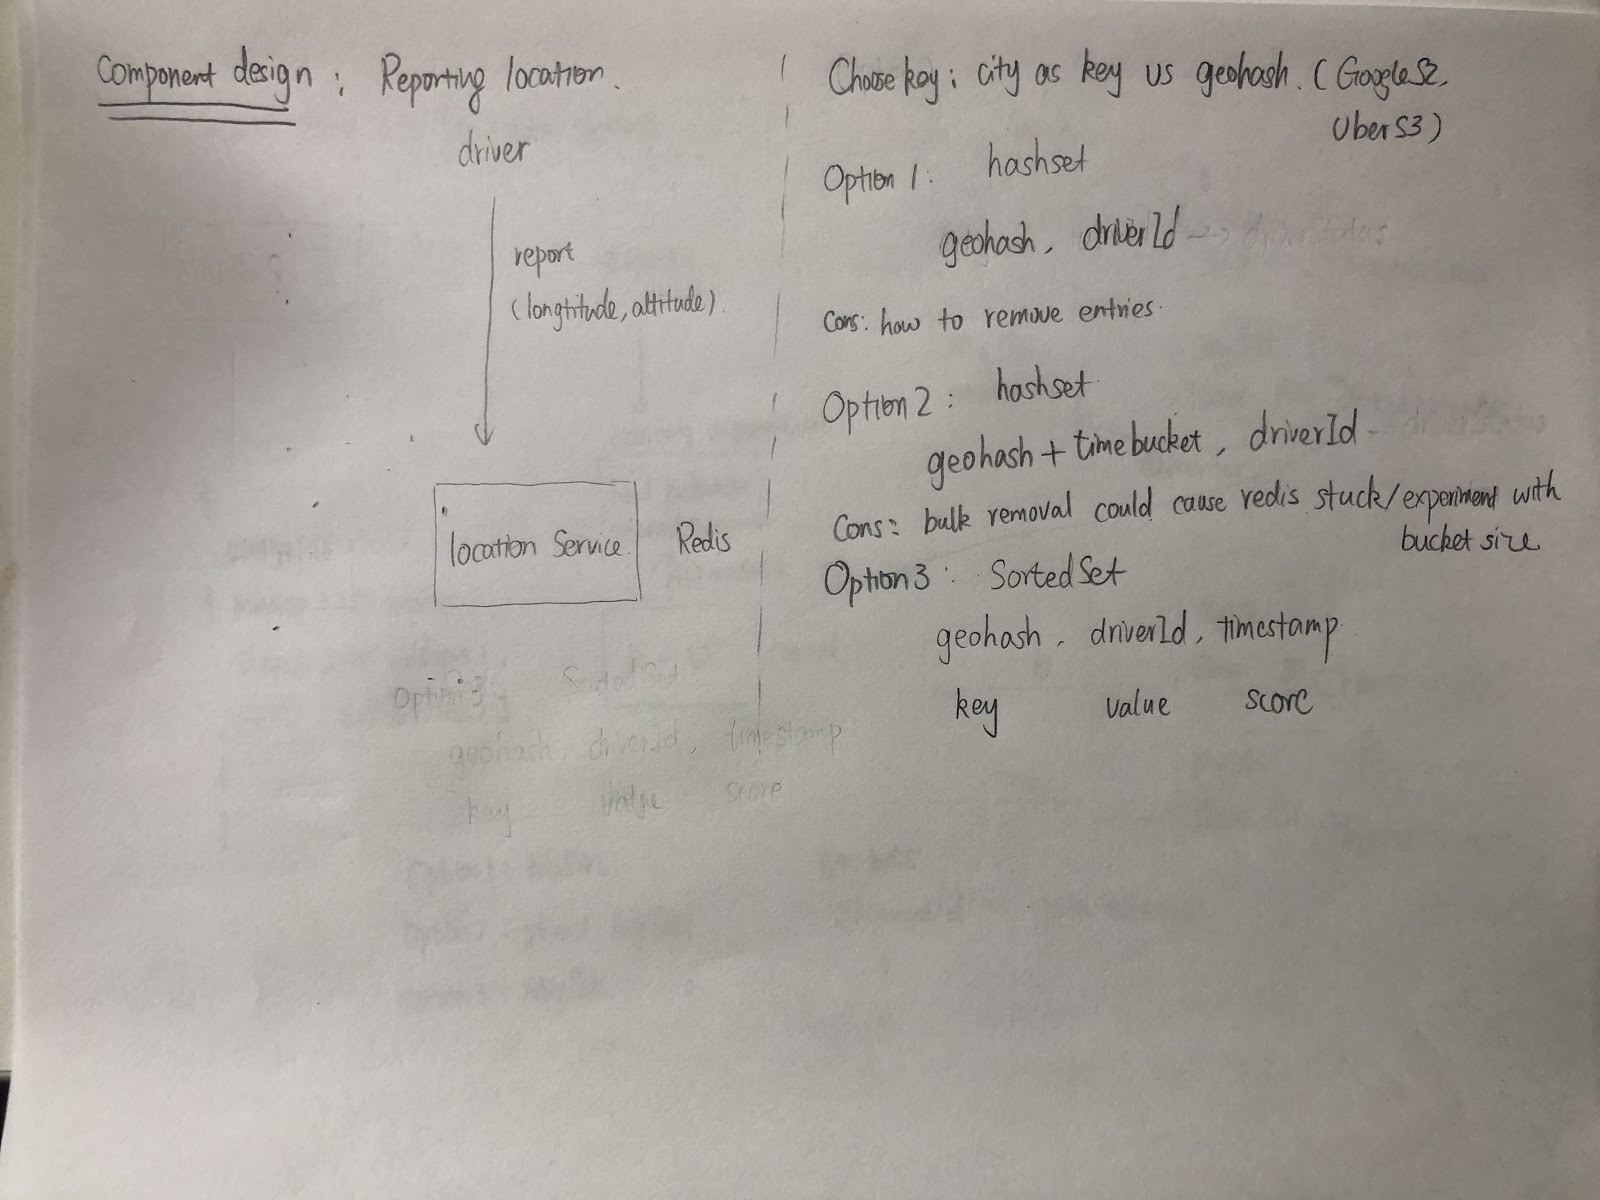 Component design : Reporting location.
driver
report
(longtitude, altitude).
location Service.
Redis
Option3 : SortedSet
geohash, driverId, timestamp
key value score
Choose key: city as key vs geohash. (GoogleS2,
UberS3)
Option 1: hashset
geohash, driverId
Cons: how to remove entries.
Option 2: hashset
geohash + timebucket, driverId
Cons: bulk removal could cause redis stuck/experiment with
bucket size
Option3: SortedSet
geohash, driverId, timestamp
key value score